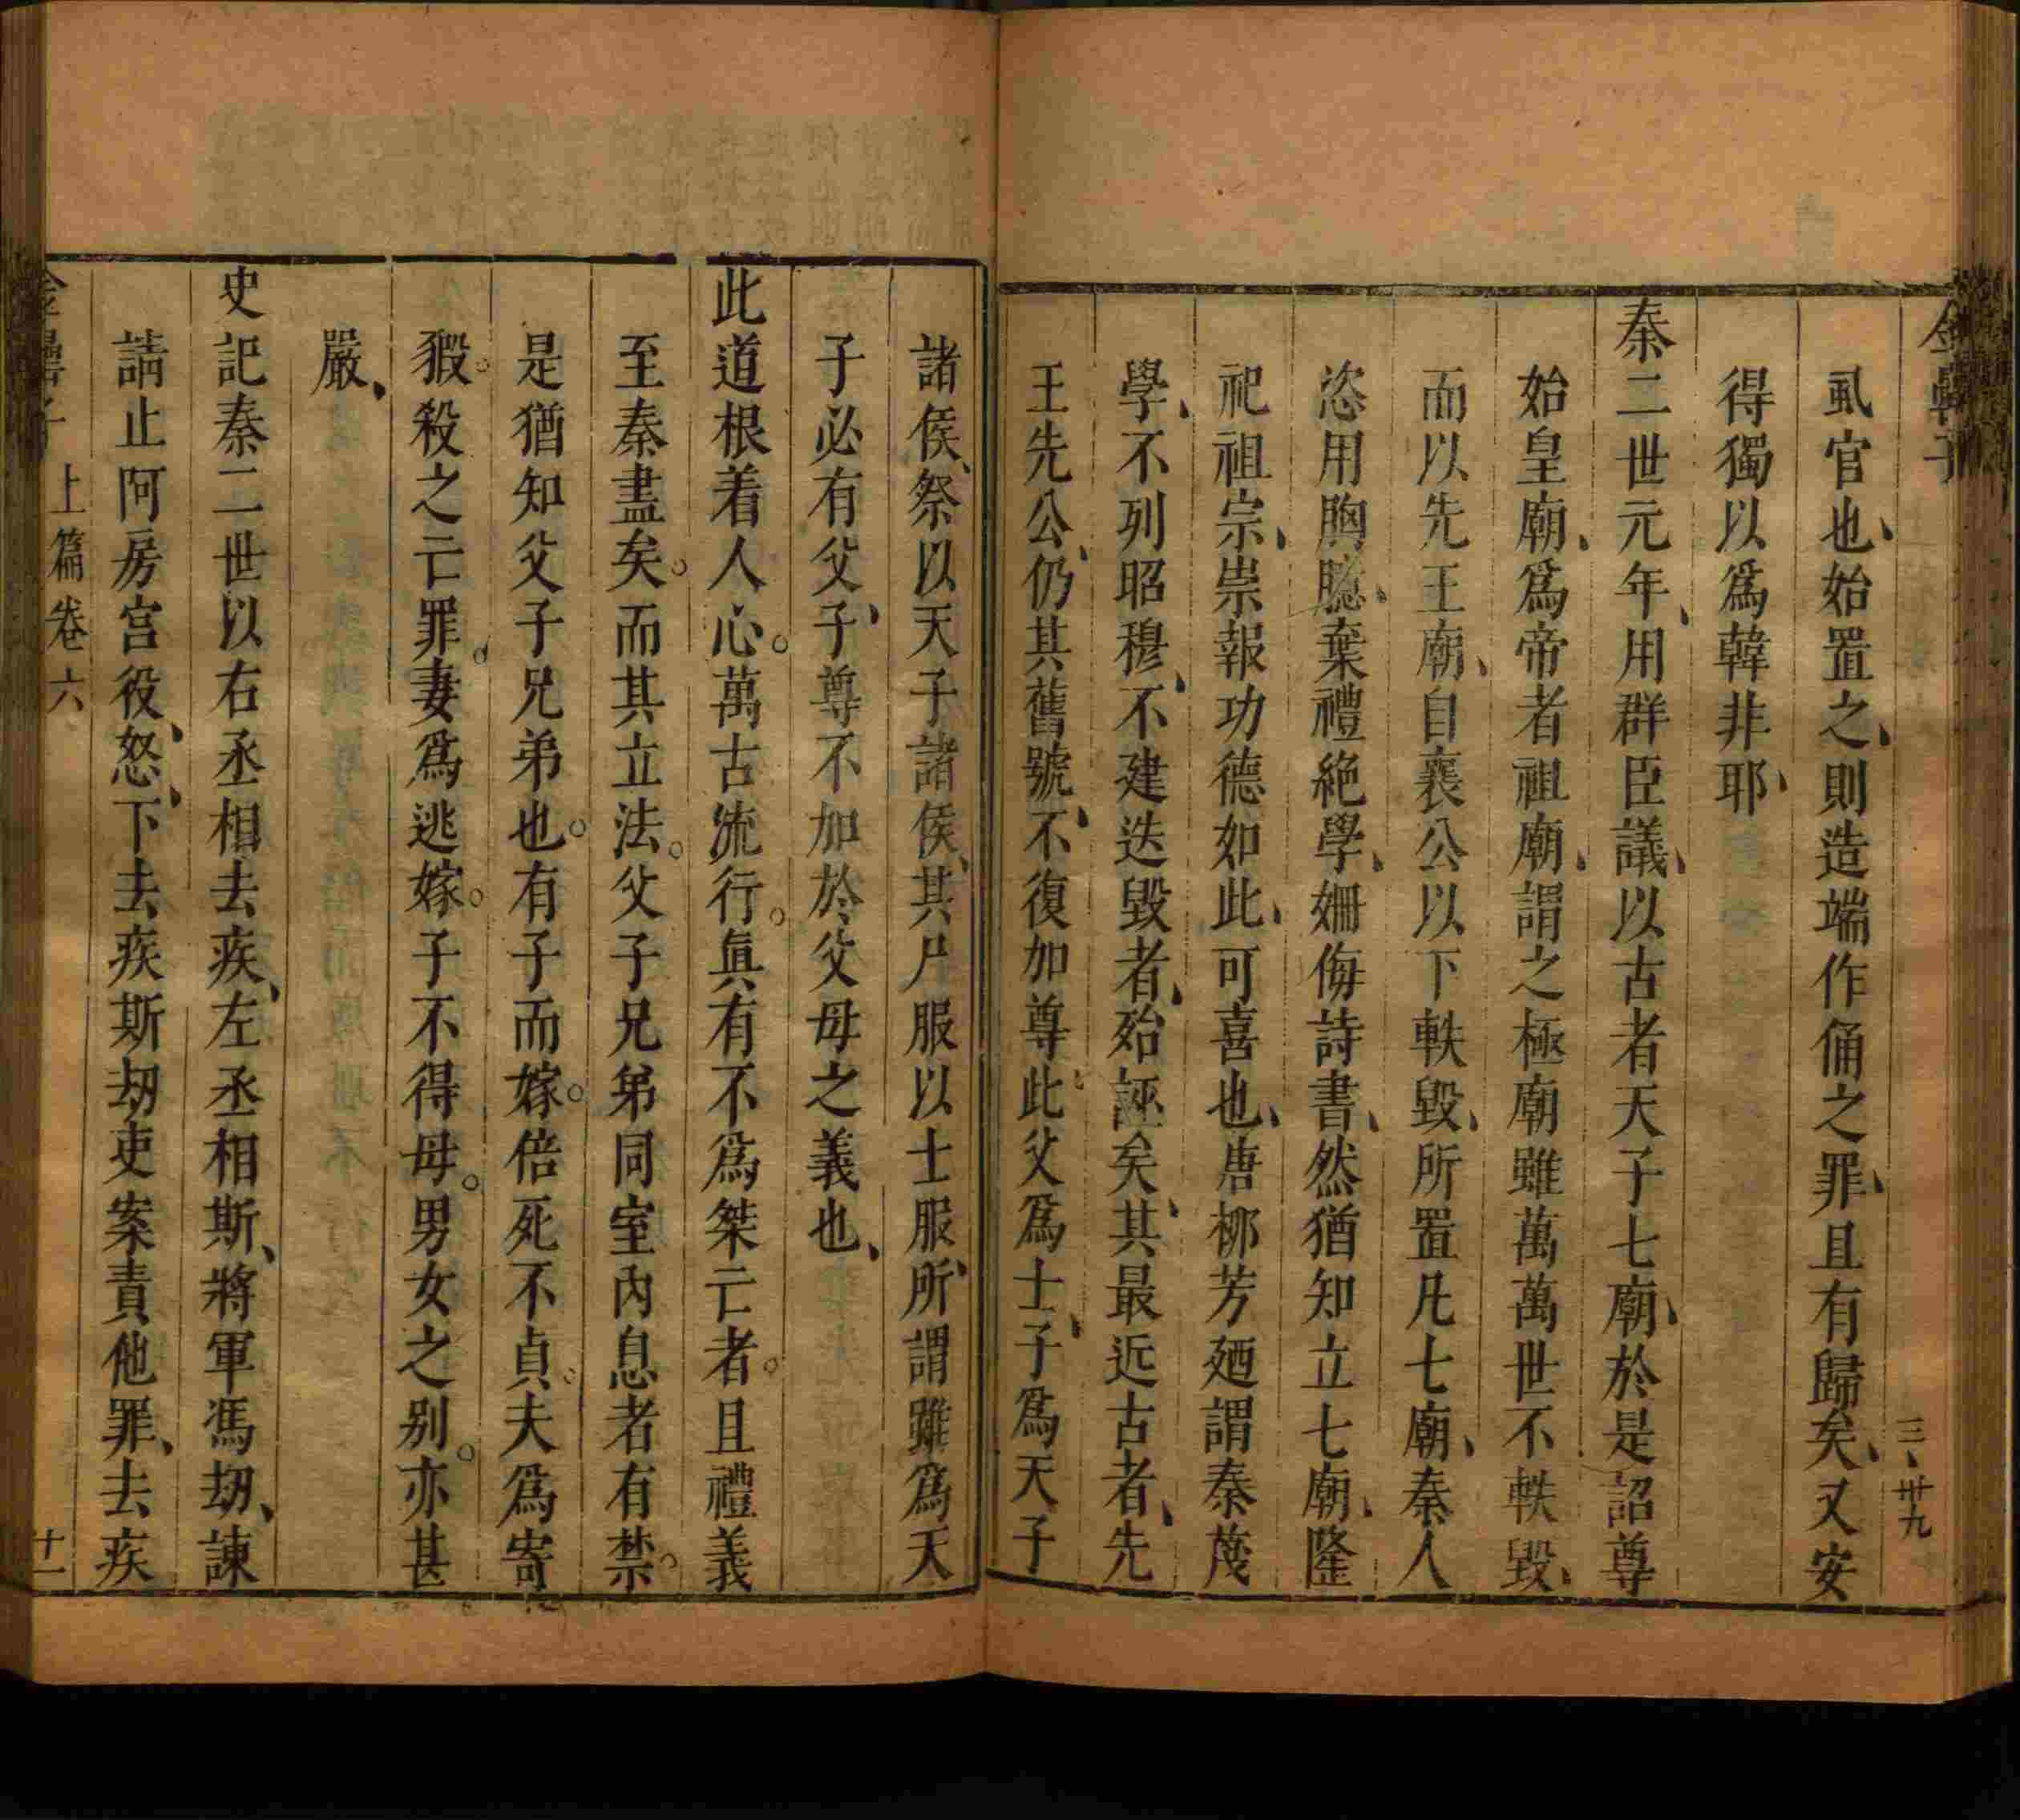 金罍子
三、卅九
虱官也、始置之、則造端作俑之罪、且有歸矣、又安
得獨以爲韓非耶、
秦二世元年、用群臣議、以古者天子七廟、於是詔尊
始皇廟、爲帝者祖廟、謂之極廟雖萬萬世不軼毀、
而以先王廟、自襄公以下軼毀、所置凡七廟、秦人
恣用胸臆、棄禮絶學、姍侮詩書、然猶知立七廟、隆
祀祖宗、崇報功德如此、可喜也、唐栁芳廼謂秦蔑
學、不列昭穆、不建迭毀者、殆誣矣、其最近古者、先
王先公、仍其舊號、不復加尊、此父爲士、子爲天子
諸侯、祭以天子諸侯、其尸服以士服、所謂雖爲天
子必有父、子尊不加於父母之義也、
此道根着人心。萬古流行。眞有不爲桀亡者。且禮義
至秦盡矣。而其立法。父子兄弟同室內息者有禁。
是猶知父子兄弟也。有子而嫁。倍死不貞。夫爲寄
豭。殺之亡罪。妻爲逃嫁。子不得母。男女之别。亦甚
嚴、
史記秦二世以右丞相去疾、左丞相斯、將軍馮劫、諫
請止阿房宮役、怒、下去疾斯劫吏案責他罪、去疾
金罍子 上篇卷六 十一